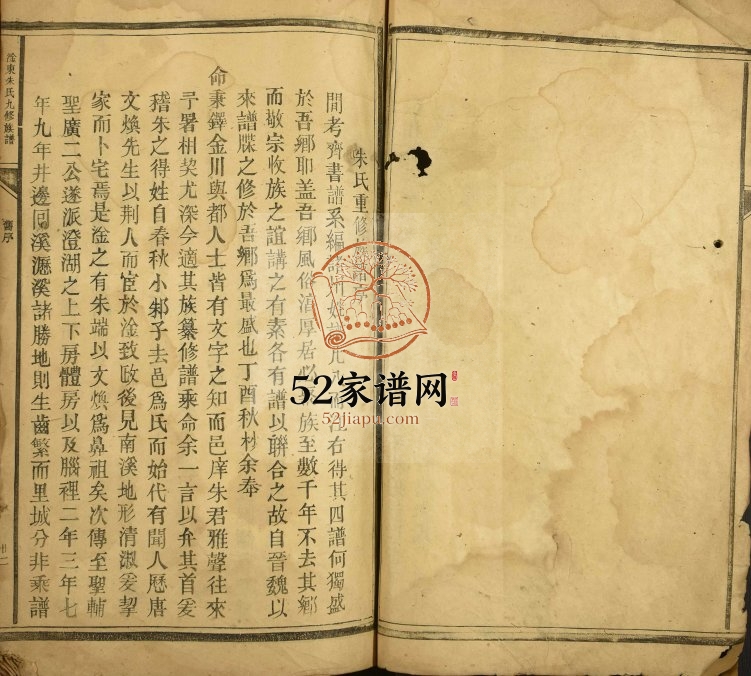 朱氏重修
間考齊書譜系編
右得其四譜何獨盛
於吾鄉耶盖吾鄉風俗淸厚居必
族至數千年不去其鄉
而敬宗收族之誼講之有素各有譜以聯合之故自晉魏以
來譜牒之修於吾鄉爲最盛也丁酉秋杪余奉
命秉鐸金川與都人士皆有文字之知而邑庠朱君雅聲往來
亍署相契尤深今適其族纂修譜乘命余一言以弁其首爰
稽朱之得姓自春秋小邾子去邑爲氏而始代有聞人歷唐
文煥先生以荆人而宦於淦致政後見南溪地形清淑爰挈
家而卜宅焉是淦之有朱端以文煥爲鼻祖矣次傳至聖輔
聖廣二公遂派澄湖之上下房體房以及腦裡二年三年七
年九年井邊囘溪灑溪諸勝地則生齒繁而里城分非乘譜
淦東朱氏九修族譜
舊序
52家谱网
52jiapu.com